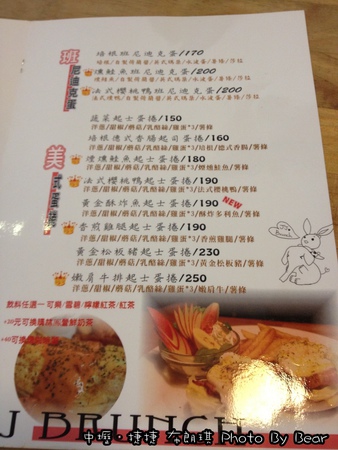 班尼迪克蛋
培根班尼迪克蛋/170
培根/自製荷蘭醬/英式瑪芬/水波蛋/薯條/莎拉
燻鮭魚班尼迪克蛋/200
燻鮭魚/自製荷蘭醬/英式瑪芬/水波蛋/薯條/莎拉
法式櫻桃鴨班尼迪克蛋/200
法式櫻鴨/自製荷蘭醬/英式瑪芬/水波蛋/薯條/莎拉
美
蔬菜起士蛋捲/150
洋蔥/甜椒/蘑菇/乳酪絲/雞蛋*3/薯條
培根德式香腸起司蛋捲/160
洋蔥/甜椒/蘑菇/乳酪絲/雞蛋*3/培根/德式香腸/薯條
煙燻鮭魚起士蛋捲/180
洋蔥/甜椒/蘑菇/乳酪絲/雞蛋*3/煙燻鮭魚/薯條
法式櫻桃鴨起士蛋捲/190
洋蔥/甜椒/蘑菇/乳酪絲/雞蛋*3/法式櫻桃鴨/薯條
黃金酥炸魚起士蛋捲/190 NEW
洋蔥/甜椒/蘑菇/乳酪絲/雞蛋*3/酥炸多利魚/薯條
香煎雞腿起士蛋捲/190
洋蔥/甜椒/蘑菇/乳酪絲/雞蛋*3/香煎雞腿/薯條
黃金松板豬起士蛋捲/230
洋蔥/甜椒/蘑菇/乳酪絲/雞蛋*3/黃金松板豬/薯條
嫩肩牛排起士蛋捲/250
洋蔥/甜椒/蘑菇/乳酪絲/雞蛋*3/嫩肩牛/薯條
飲料任選一 可樂/雪碧/檸檬紅茶/紅茶
J BRUNCH
中壢·捷捷 布朗琪 Photo By Bear